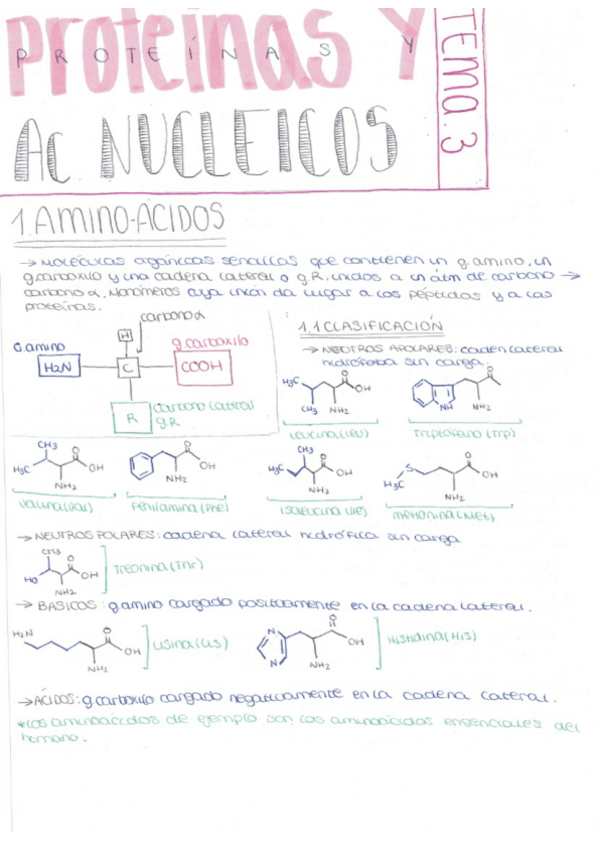 Proteínas y
PROTEÍNAS Y
Ac. NUCLEICOS
TEMA.3
1.AMINO-ÁCIDOS
→ Moléculas orgánicas sencillas que contienen un g.amino, un
g.carboxilo y una cadena lateral o g.R, unidos a un átm de carbono →
carbono α. Monómeros cuya unión da lugar a los péptidos y a las
proteínas.
carbono α
G.amino
g.carboxilo
H
H2N
C
COOH
R
carbono lateral
g.R
1.1 CLASIFICACIÓN
→ NEUTROS APOLARES: caden lateral
hidrófoba sin carga.
H3C
O
OH
CH3
NH2
Leucina (Leu)
NH
NH2
Triptófano (Trp)
CH3
H3C
O
OH
NH2
Valina (Val)
O
OH
NH2
Fenilamina (Phe)
CH3
H3C
O
OH
NH2
Isoleucina (Ile)
S
H3C
O
OH
NH2
Metionina (Met)
→ NEUTROS POLARES: cadena lateral hidrófila sin carga
CH3
O
HO
OH
NH2
Treonina (Thr)
→ BASICOS: g.amino cargado positivamente en la cadena lateral.
H2N
O
OH
NH2
Lisina (Lis)
N
N
O
OH
NH2
Histidina (His)
→ ÁCIDOS: g.carboxilo cargado negativamente en la cadena lateral.
*Los aminoácidos de ejemplo son los aminoácidos ensenciales del
humano.